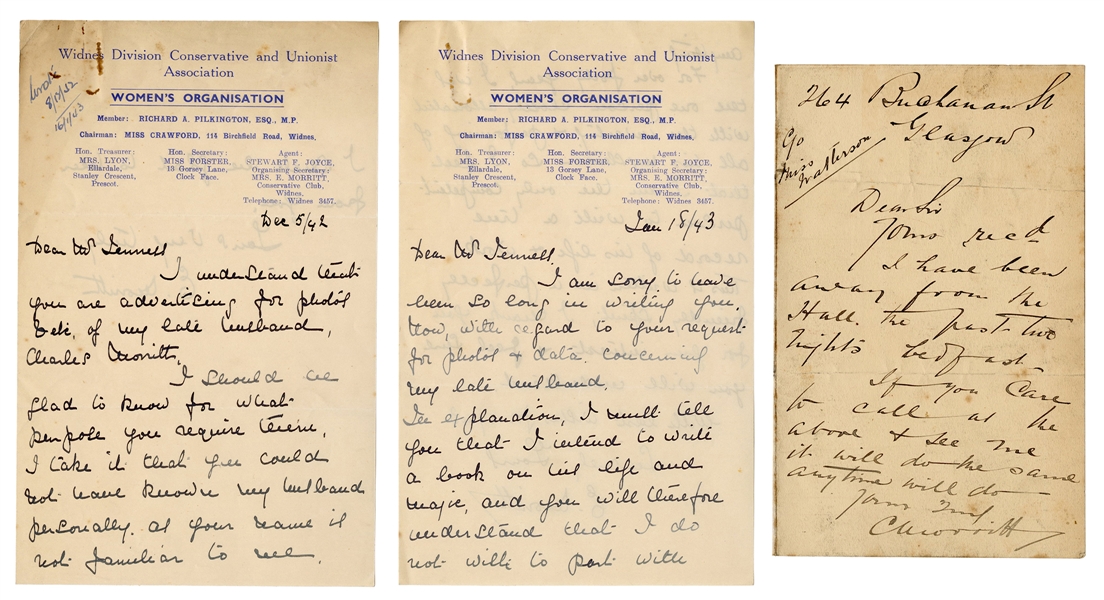 Widnes Division Conservative and Unionist
Association
WOMEN'S ORGANISATION
Member: RICHARD A. PILKINGTON, ESQ., M.P.
Chairman: MISS CRAWFORD, 114 Birchfield Road, Widnes.
Hon. Treasurer:
MRS. LYON,
Ellardale,
Stanley Crescent,
Prescot.
Hon. Secretary:
MISS FORSTER,
13 Gorsey Lane,
Clock Face.
Agent:
STEWART F. JOYCE,
Organising Secretary:
MRS. E. MORRITT,
Conservative Club,
Widnes.
Telephone: Widnes 3457.
wrote
8/12/42
16/1/43
Dec 5/42
Dear Mr Jennell
I understand that
you are advertising for photos
etc. of my late husband,
Charles Morritt.
I should be
glad to know for what
purpose you require them.
I take it that you could
not have known my husband
personally. as your name is
not familiar to me
Widnes Division Conservative and Unionist
Association
WOMEN'S ORGANISATION
Member: RICHARD A. PILKINGTON, ESQ., M.P.
Chairman: MISS CRAWFORD, 114 Birchfield Road, Widnes.
Hon. Treasurer:
MRS. LYON,
Ellardale,
Stanley Crescent,
Prescot.
Hon. Secretary:
MISS FORSTER,
13 Gorsey Lane,
Clock Face.
Agent:
STEWART F. JOYCE,
Organising Secretary:
MRS. E. MORRITT,
Conservative Club,
Widnes.
Telephone: Widnes 3457.
Jan 18/43
Dear Mr Jennell.
I am sorry to have
been so long in writing you.
Now, with regard to your request
for photos & data, concerning
my late husband.
In explanation, I must tell
you that I intend to write
a book on his life and
magic, and you will therefore
understand that I do
not wish to part with
264 Buchanan St
Glasgow
C/o
Miss
Watterson
Dear Sir
Yours recd
I have been
away from the
Hall. the past two
nights bedfast
If you care
to call at the
above & see me
it will do the same
anytime will do
Yours Truly
C Morritt